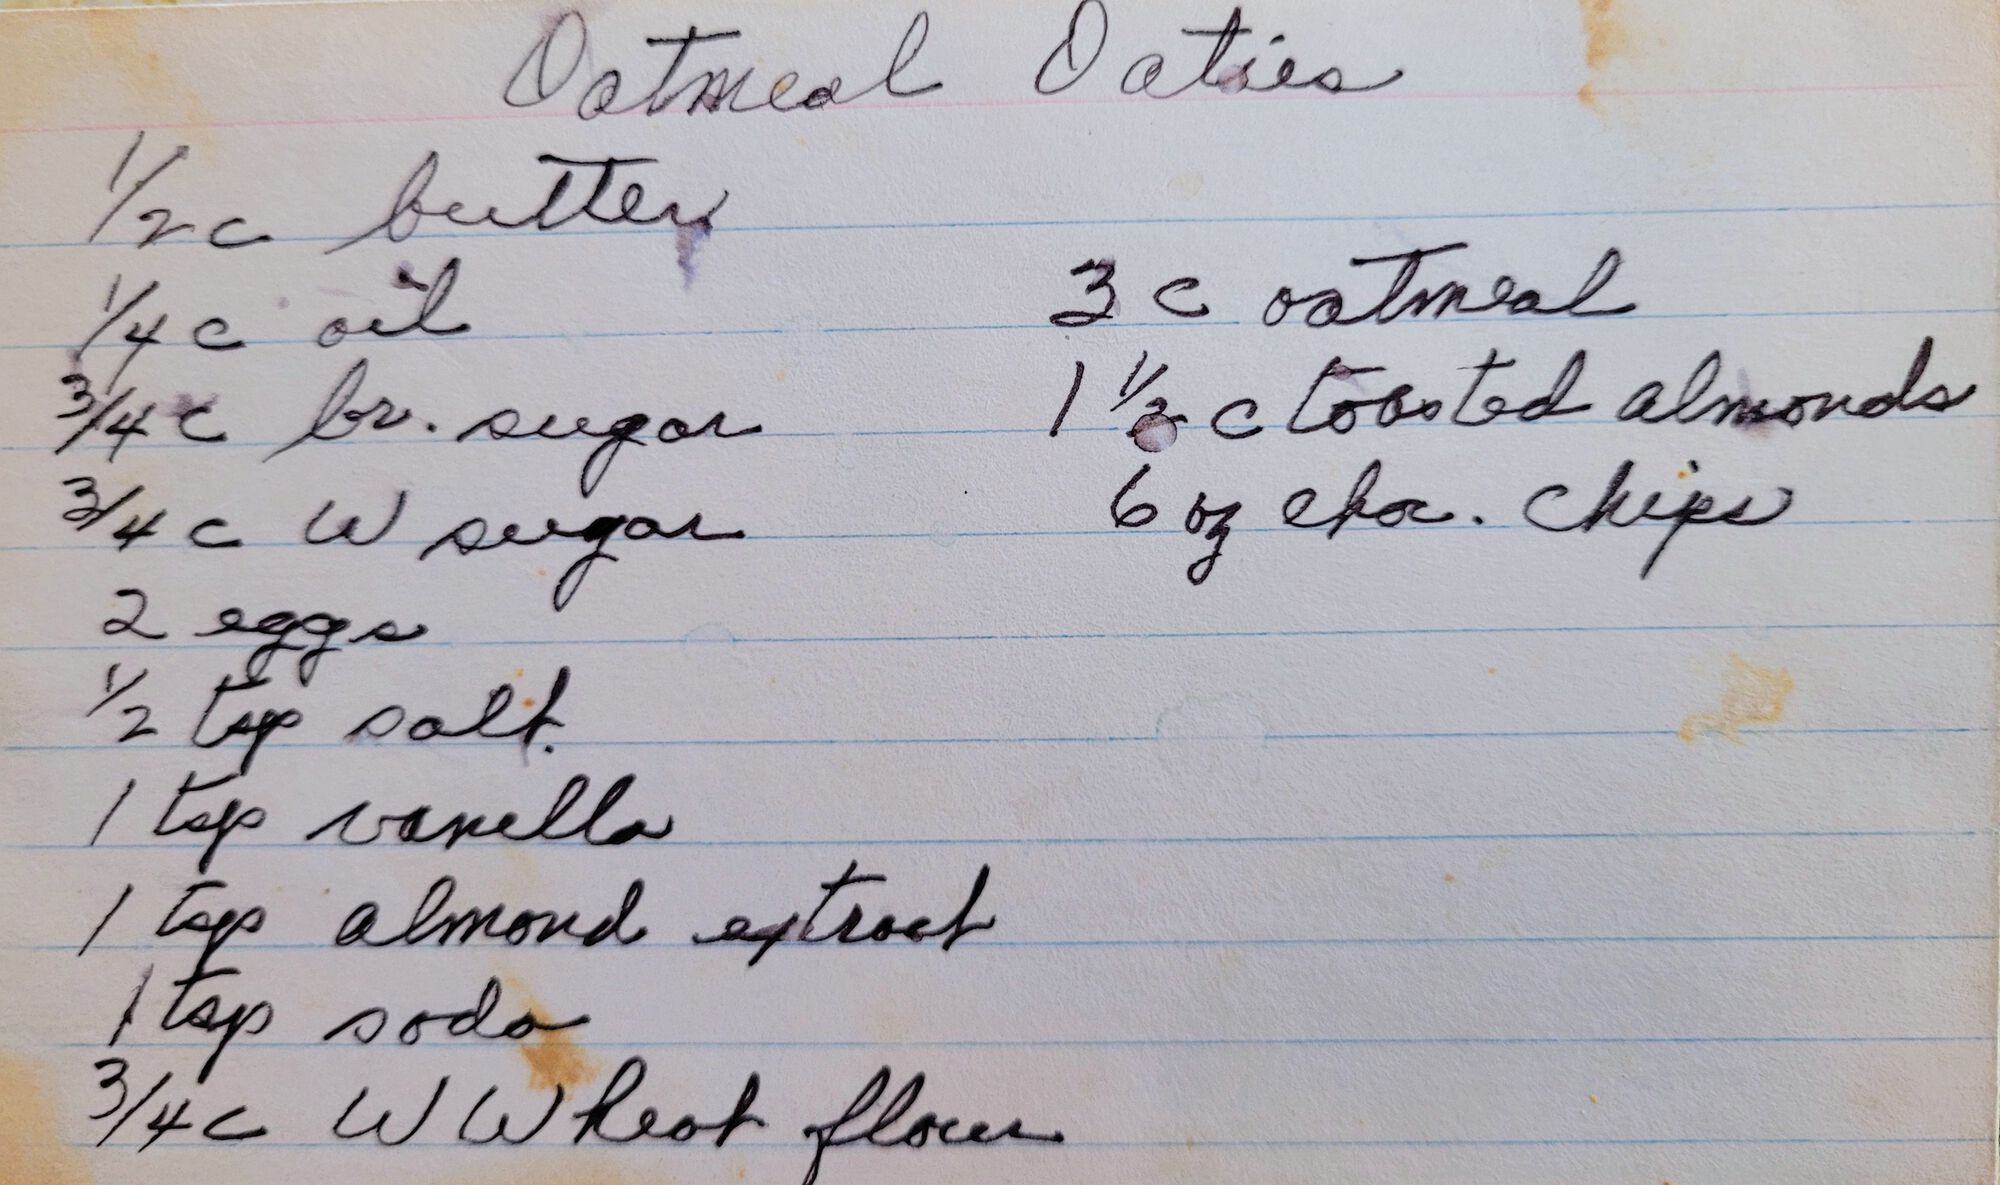 Oatmeal Oaties
1/2 c butter
1/4 c oil
3/4 c br. sugar
3/4 c W sugar
2 eggs
1/2 tsp salt.
1 tsp vanilla
1 tsp almond extract
1 tsp soda
3/4 c W Wheat flour
3 c oatmeal
1 1/2 c toasted almonds
6 oz choc. chips